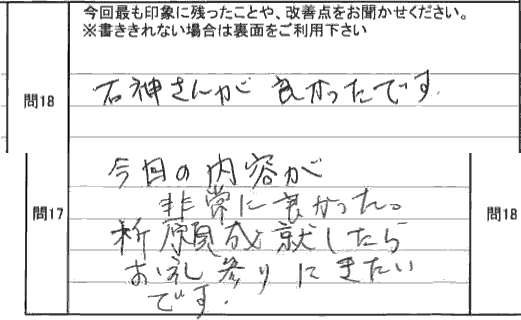 今回最も印象に残ったことや、改善点をお聞かせください。
※書ききれない場合は裏面をご利用下さい
問18
石神さんが良かったです.
問17
今回の内容が
非常に良かった。
祈願成就したら
お礼参りにきたい
です.
問18